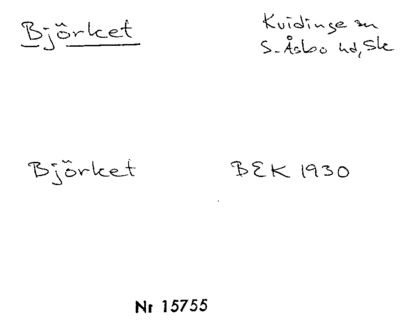 Björket
Kvidinge sn
S. Åsbo hd, Sk
Björket BEK 1930
Nr 15755